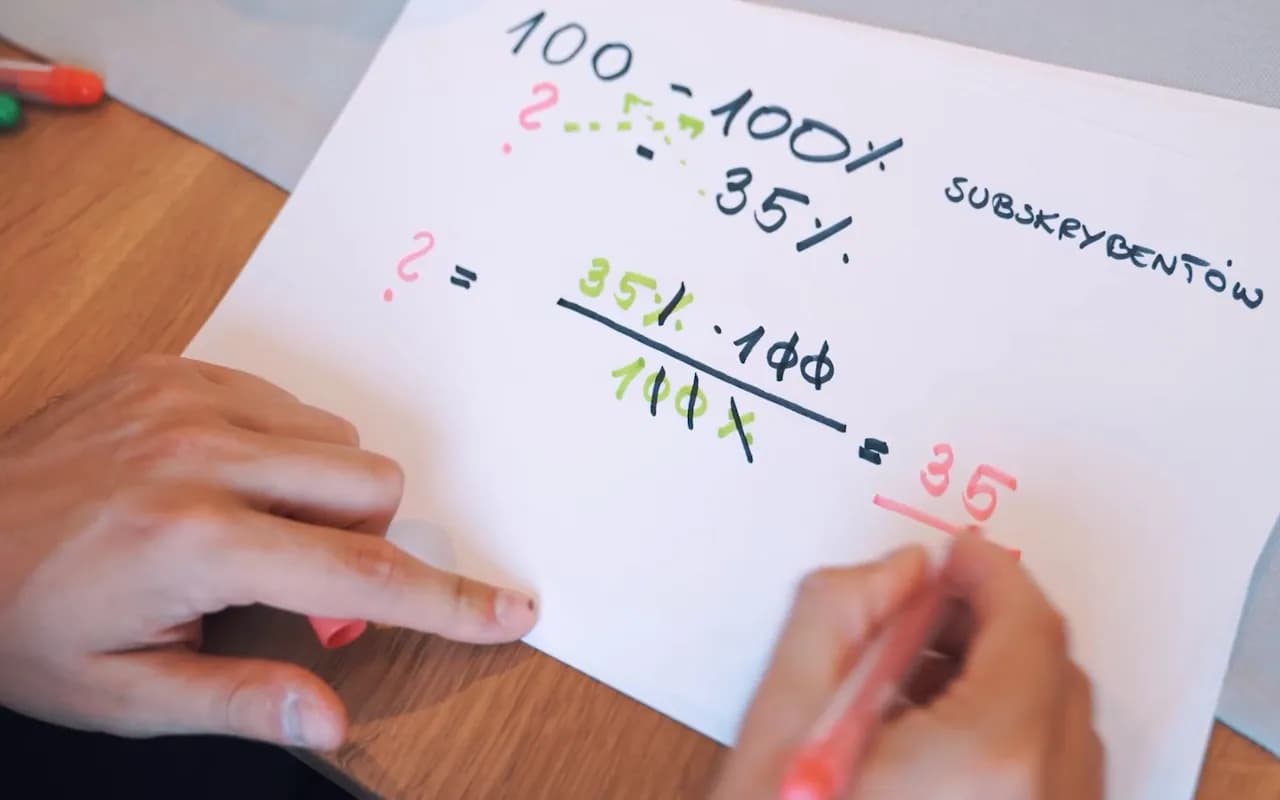 100 - 100%
? - 35% SUBSKRYBENTÓW
? = 35% · 100
100% = 35